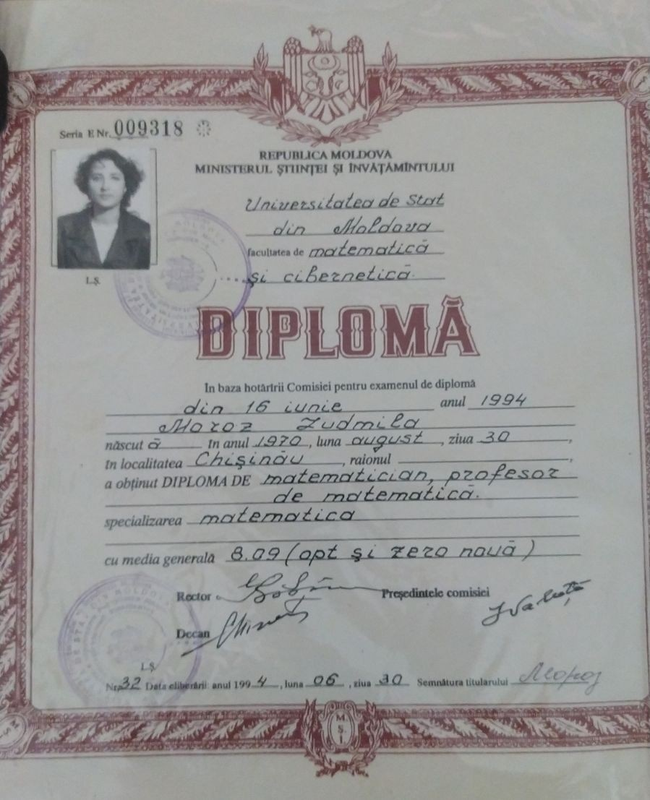 Seria E Nr. 009318
REPUBLICA MOLDOVA
MINISTERUL ŞTIINŢEI ŞI ÎNVĂŢĂMÎNTULUI
Universitatea de Stat
din Moldova
facultatea de matematică
şi cibernetică.
L.Ş.
DIPLOMĂ
In baza hotărîrii Comisiei pentru examenul de diplomă
din 16 iunie anul 1994
Moroz Ludmila
născut ă în anul 1970, luna august, ziua 30,
în localitatea Chişinău, raionul
a obţinut DIPLOMA DE matematician, profesor
de matematică.
specializarea matematica
cu media generală 8.09 (opt şi zero nouă)
Rector Preşedintele comisiei
Decan
L.Ş.
Nr. 32 Data eliberării: anul 1994, luna 06, ziua 30 Semnătura titularului Мороз
M.
S.I.